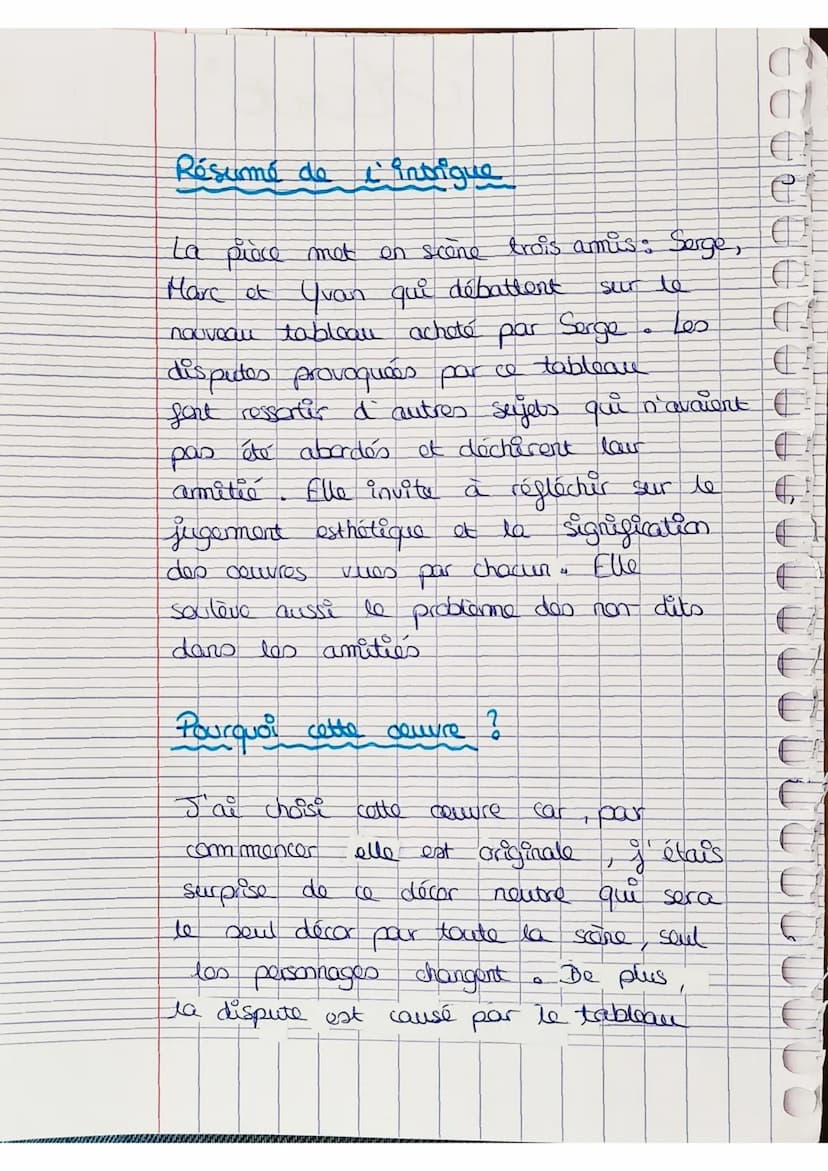 Résumé de l'intrigue
La pièce met en scène trois amis : Serge,
Marc et Yvan qui débattent sur le
nouveau tableau acheté par Serge. Les
disputes provoquées par ce tableau
font ressortir d'autres sujets qui n'avaient
pas été abordés et déchirent leur
amitié. Elle invite à réfléchir sur le
jugement esthétique et la signification
des oeuvres vues par chacun. Elle
soulève aussi le problème des non dits
dans les amitiés
Pourquoi cette oeuvre ?
J'ai choisi cette oeuvre car, par
commencer elle est originale, j'étais
surprise de ce décor neutre qui sera
le seul décor par toute la scène, seul
les personnages changent. De plus,
la dispute est causé par le tableau